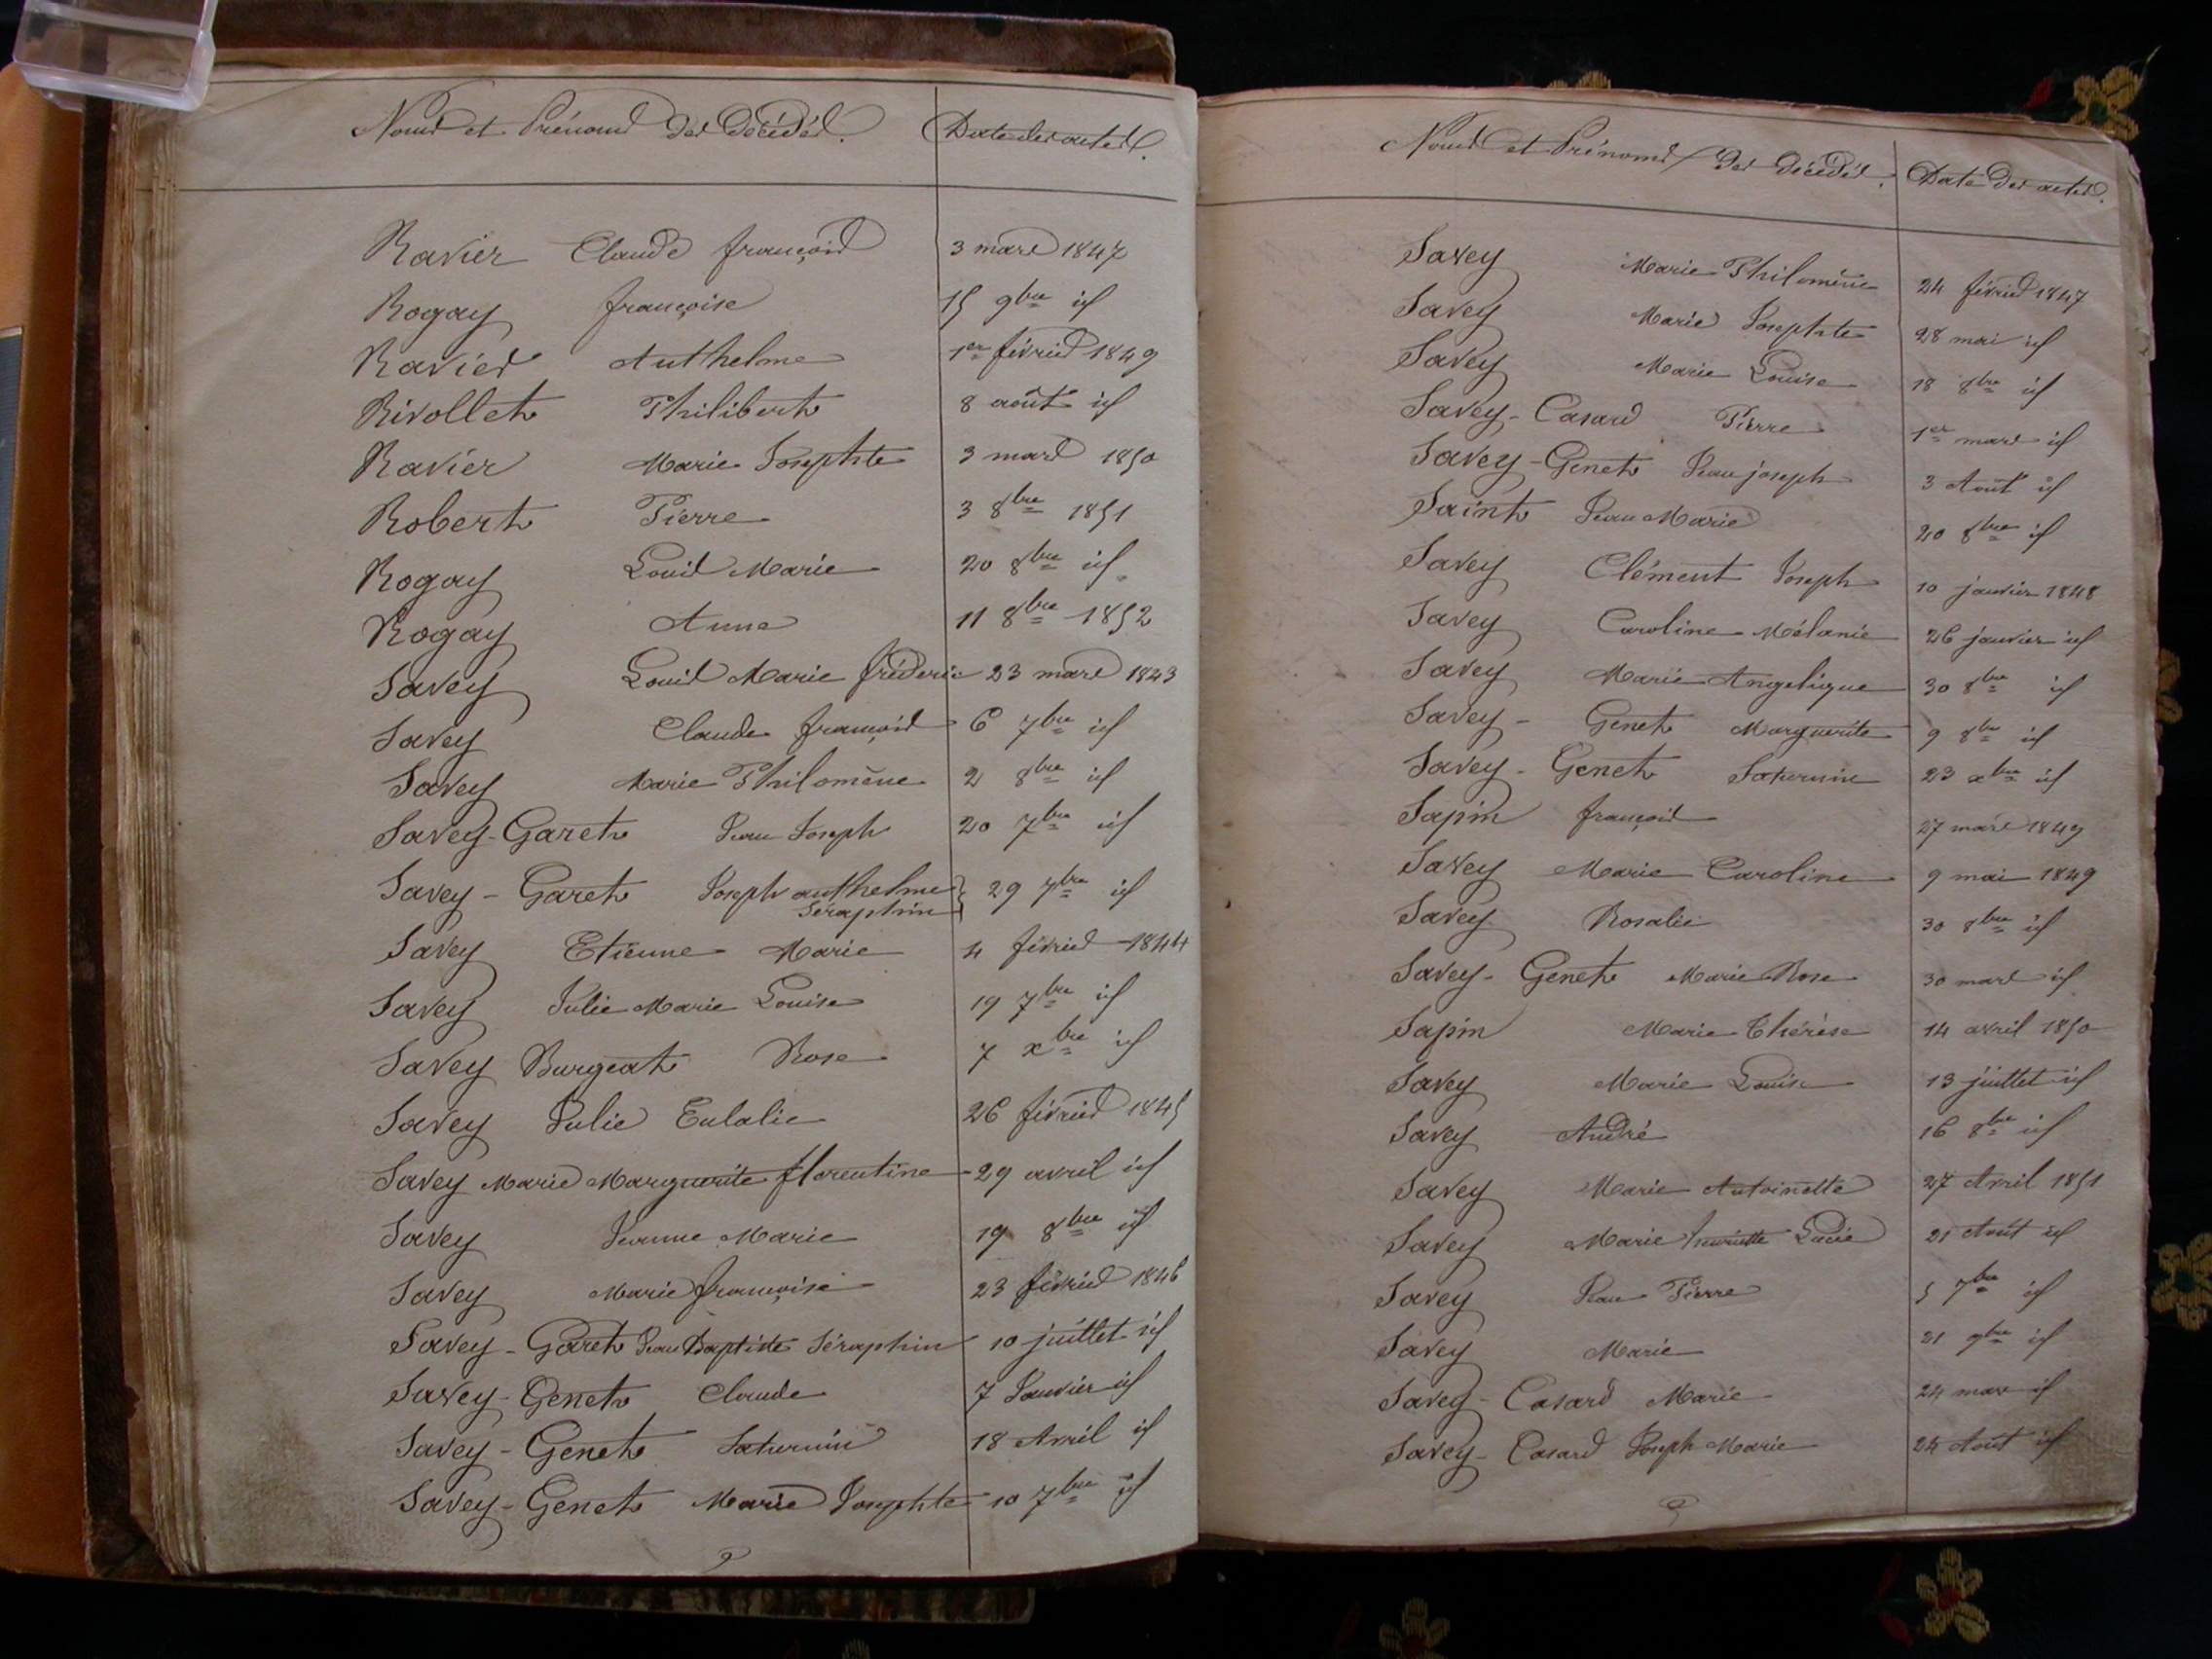 Noms et Prénoms des Décédés. Date des actes.
Ravier Claude françois 3 mars 1847
Rogay françoise 15 9bre id
Ravier Anthelme 1er février 1849
Rivollet Philibert 8 août id
Ravier Marie Josephte 3 mars 1850
Robert Pierre 3 8bre 1851
Rogay Louis Marie 20 8bre id
Rogay Anna 11 8bre 1852
Savey Louis Marie fréderic 23 mars 1843
Savey Claude françois 6 7bre id
Savey Marie Philomène 2 8bre id
Savey-Garet Jean Joseph 20 7bre id
Savey-Garet Joseph anthelme } 29 7bre id
Séraphin
Savey Etienne Marie 4 février 1844
Savey Julie Marie Louise 19 7bre id
Savey Burgeat Rose 7 xbre id
Savey Julie Eulalie 26 février 1845
Savey Marie Marguerite florentine 29 avril id
Savey Jeanne Marie 19 8bre id
Savey Marie françoise 23 février 1846
Savey-Garet Jean Baptiste Séraphin 10 juillet id
Savey-Genet Claude 7 Janvier id
Savey-Genet Saturnin 18 Avril id
Savey-Genet Marie Josephte 10 7bre id
Noms et Prénoms des décédés. Date des actes.
Savey Marie Philomène 24 février 1847
Savey Marie Josephte 28 mai id
Savey Marie Louise 18 8bre id
Savey-Casard Pierre 1er mars id
Savey-Genet Jean joseph 3 Août id
Saint Jean Marie 20 8bre id
Savey Clément Joseph 10 janvier 1848
Savey Caroline Mélanie 26 janvier id
Savey Marie Angelique 30 8bre id
Savey-Genet Marguerite 9 8bre id
Savey-Genet Saturnin 23 xbre id
Sapin françois 27 mars 1849
Savey Marie Caroline 9 mai 1849
Savey Rosalie 30 8bre id
Savey-Genet Marie Rose 30 mars id
Sapin Marie Thérèse 14 avril 1850
Savey Marie Louise 13 juillet id
Savey André 16 8bre id
Savey Marie Antoinette 27 Avril 1851
Savey Marie henriette Lucie 21 Août id
Savey Jean Pierre 5 7bre id
Savey Marie 21 9bre id
Savey-Casard Marie 24 mars id
Savey-Casard Joseph Marie 24 Août id